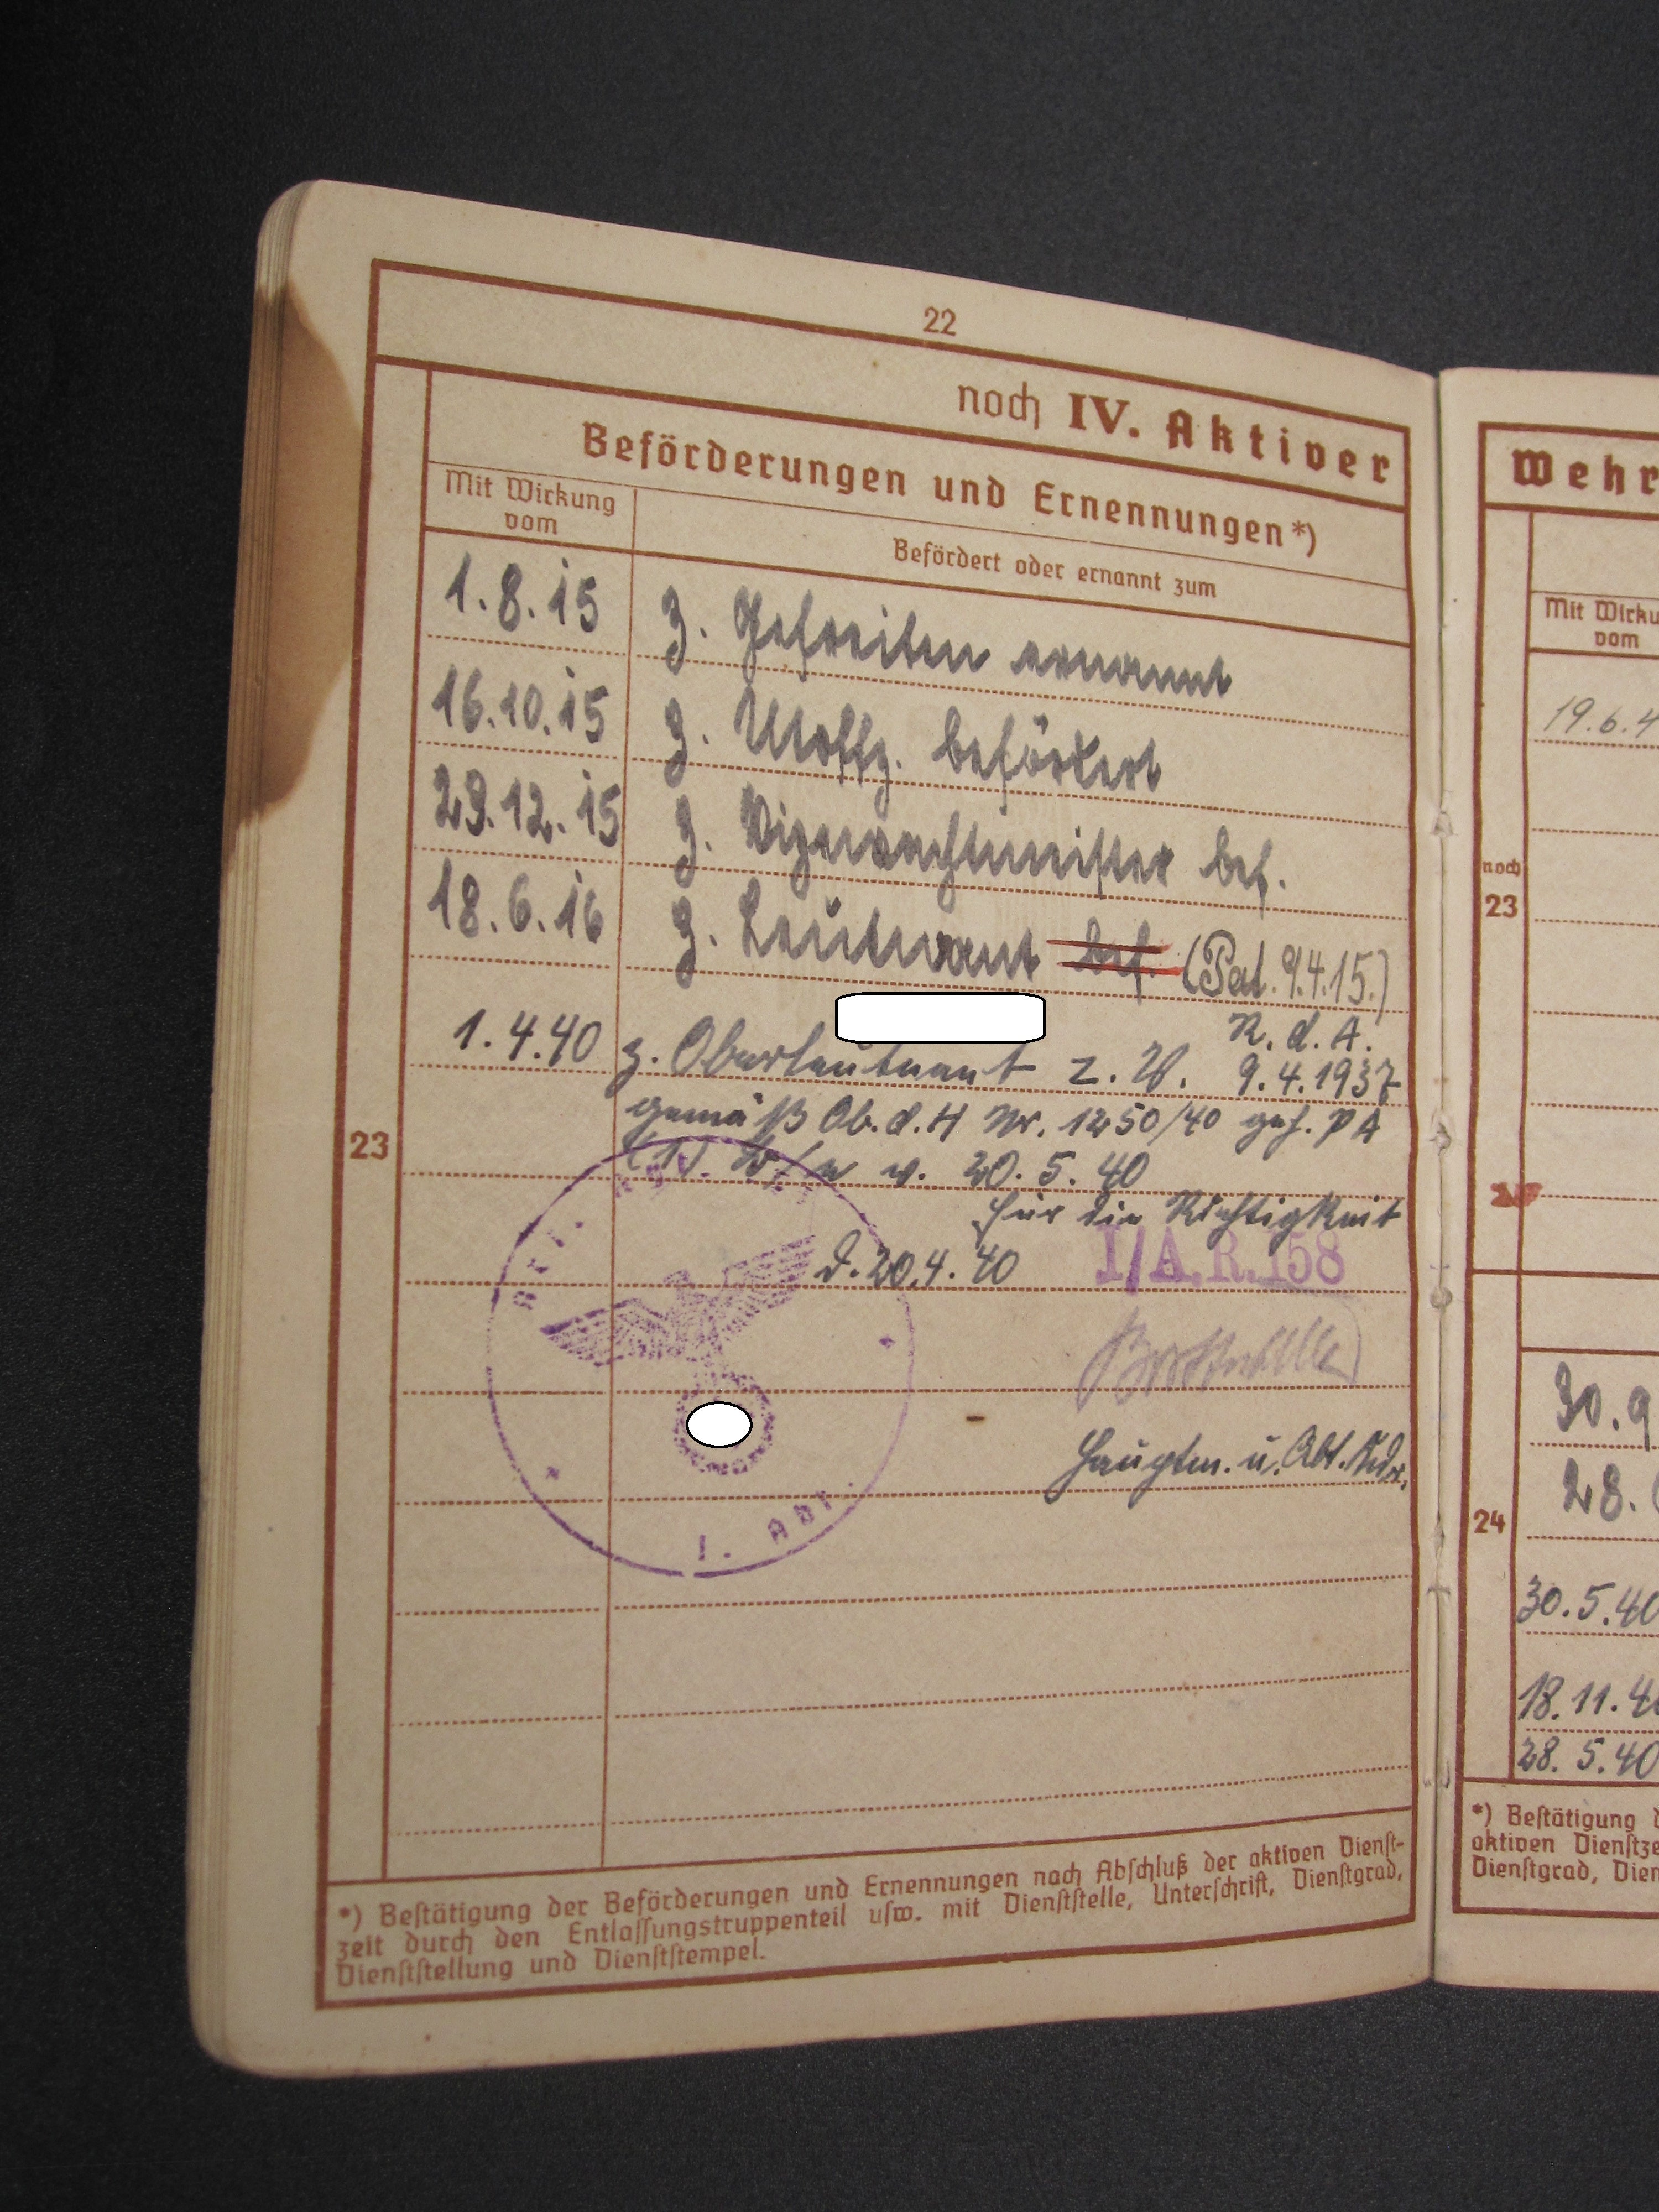 22
noch IV. Aktiver
Beförderungen und Ernennungen*)
Mit Wirkung
vom
Befördert oder ernannt zum
1.8.15 z. Gefreiten ernannt
16.10.15 z. Utoffz. befördert
29.12.15 z. Vizewachtmeister bef.
18.6.16 z. Leutnant bef. (Pat. 9.4.15.)
R. d. A.
1.4.40 z. Oberleutnant z. V. 9.4.1937
gemäß Ob. d. H Nr. 1250/40 geh. PA
v. 20.5.40
23
für die Richtigkeit
d. 20.4.40 I/A.R.158
Hauptm. u. Abt. Kdr.
I. Abt.
*) Bestätigung der Beförderungen und Ernennungen nach Abschluß der aktiven Dienst-
zeit durch den Entlassungstruppenteil usw. mit Dienststelle, Unterschrift, Dienstgrad,
Dienststellung und Dienststempel.
Wehr
Mit Wirku
vom
19.6.4
noch
23
30.9
28.
24
30.5.40
18.11.40
28.5.40
*) Bestätigung d
aktiven Dienstze
Dienstgrad, Dien